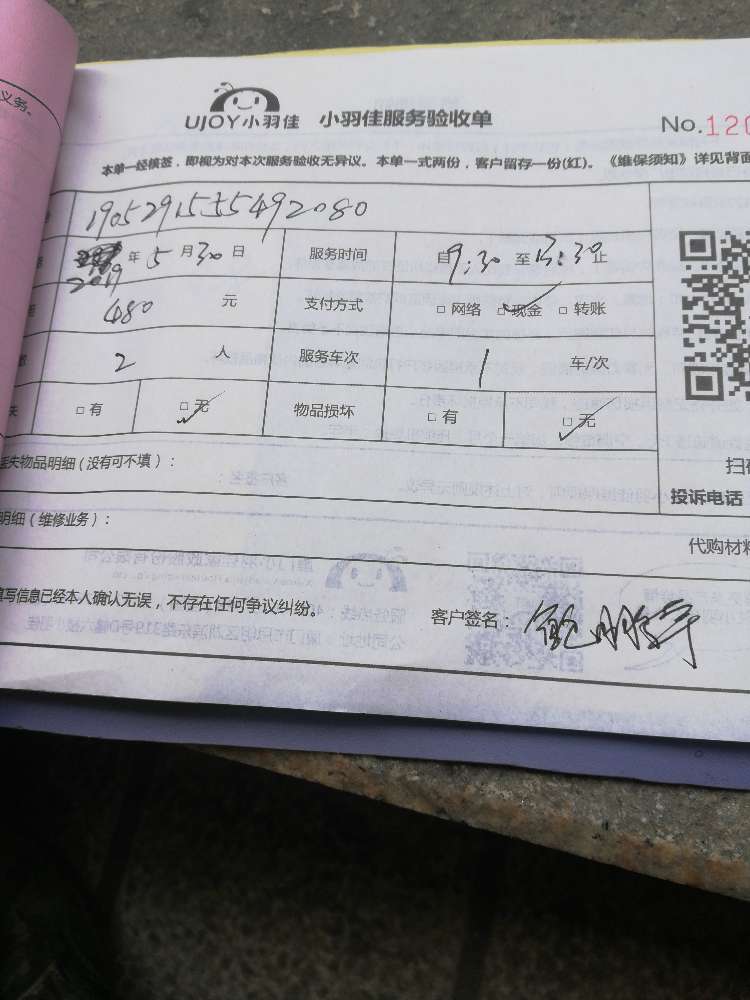 义务。
UJOY小羽佳 小羽佳服务验收单
No.120
本单一经核签，即视为对本次服务验收无异议。本单一式两份，客户留存一份(红)。《维保须知》详见背面
1905291555492080
2019年5月30日 服务时间 自9:30至13:30止
480 元 支付方式 □网络 □现金 □转账
2 人 服务车次 1 车/次
失 □有 □无 物品损坏 □有 □无
丢失物品明细（没有可不填）：
扫
投诉电话
明细（维修业务）：
代购材料
填写信息已经本人确认无误，不存在任何争议纠纷。 客户签名：